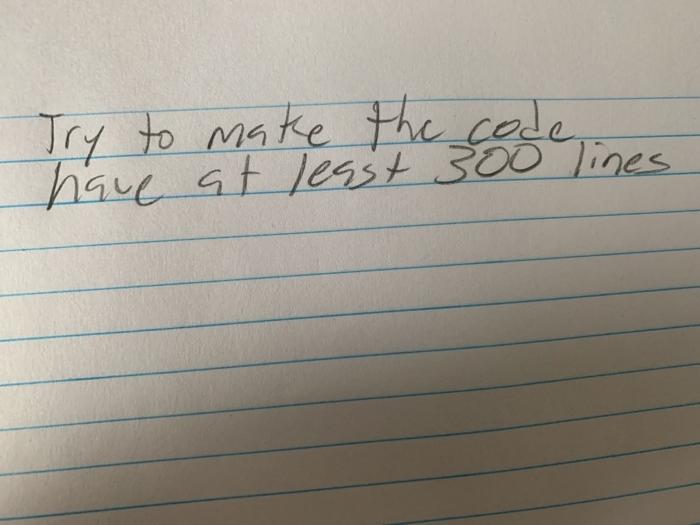 Try to make the code
have at least 300 lines